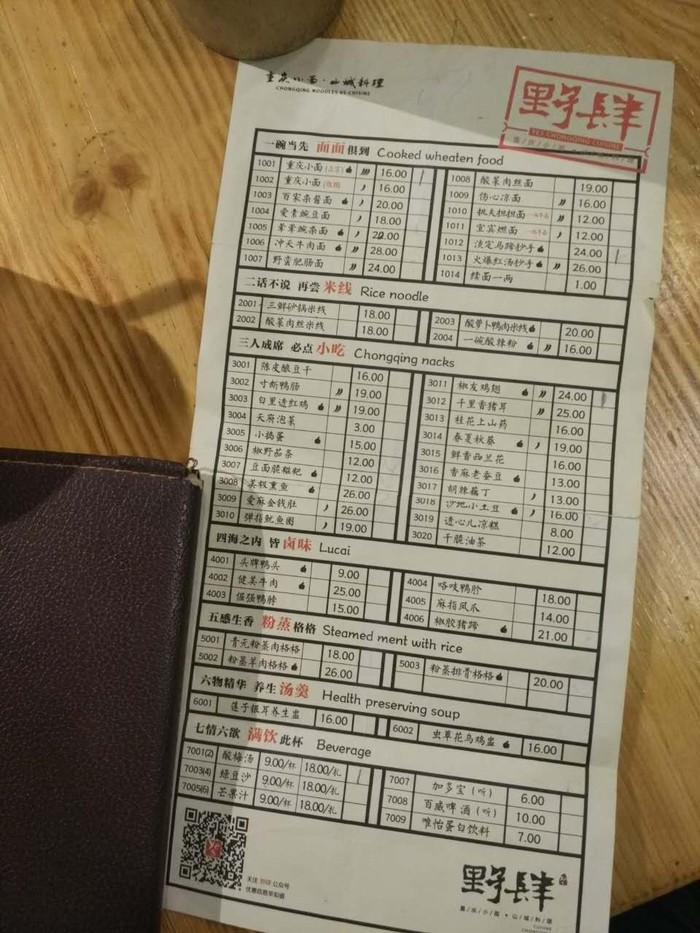 重庆小面·山城料理
CHONGQING NOODLES BE CUISINE
野肆
YES CHONGQING CUISINE
一碗当先 面面俱到 Cooked wheaten food
1001 重庆小面 16.00
1002 重庆小面 16.00
1003 百家杂酱面 20.00
1004 爱青豌豆面 18.00
1005 荤荤豌杂面 22.00
1006 冲天牛肉面 28.00
1007 野蛮肥肠面 24.00
1008 酸菜肉丝面 19.00
1009 伤心凉面 16.00
1010 挑夫担担面 12.00
1011 宜宾燃面 12.00
1012 淡定乌鸡抄手 24.00
1013 火爆红汤抄手 26.00
1014 续面一两 1.00
二话不说 再尝米线 Rice noodle
2001 三鲜砂锅米线 18.00
2002 酸菜肉丝米线 18.00
2003 酸萝卜鸭肉米线 20.00
2004 一碗酸辣粉 16.00
三人成席 必点小吃 Chongqing nacks
3001 陈皮酿豆干 16.00
3002 寸断鸭肠 19.00
3003 白里透红鸡 19.00
3004 天府泡菜 3.00
3005 小捣蛋 15.00
3006 椒野茄条 12.00
3007 豆面腻糍粑 12.00
3008 美极熏鱼 26.00
3009 爱麻金钱肚 26.00
3010 弹指鱿鱼圈 19.00
3011 椒友鸡翅 24.00
3012 千里香猪耳 25.00
3013 桂花上山药 16.00
3014 春夏秋葵 19.00
3015 鲜香西兰花 16.00
3016 香麻老蚕豆 13.00
3017 胡辣藕丁 13.00
3018 沙地小土豆 16.00
3019 透心儿凉糕 8.00
3020 干脆油茶 12.00
四海之内 皆卤味 Lucai
4001 头牌鸭头 9.00
4002 健美牛肉 25.00
4003 倔强鸭脖 15.00
4004 咯吱鸭胗 18.00
4005 麻指凤爪 14.00
4006 椒胶猪蹄 21.00
五感生香 粉蒸格格 Steamed ment with rice
5001 青元粉蒸肉格格 18.00
5002 粉蒸羊肉格格 26.00
5003 粉蒸排骨格格 20.00
六物精华 养生汤羹 Health preserving soup
6001 莲子银耳养生盅 16.00
6002 虫草花乌鸡盅 16.00
七情六欲 满饮此杯 Beverage
7001(2) 酸梅汤 9.00/杯 18.00/扎
7003(4) 绿豆沙 9.00/杯 18.00/扎
7005(6) 芒果汁 9.00/杯 18.00/扎
7007 加多宝(听) 6.00
7008 百威啤酒(听) 10.00
7009 唯怡蛋白饮料 7.00
关注 野肆 公众号
优惠信息早知道
野肆
重庆小面·山城料理